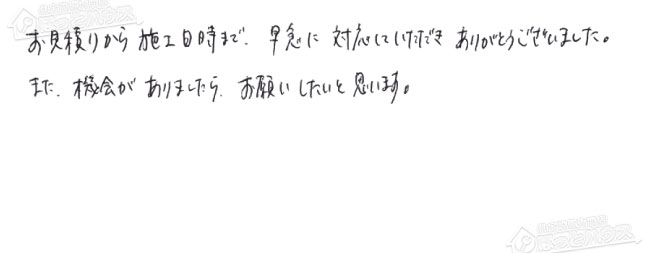 お見積りから施工日時まで、早急に対応していただきありがとうございました。
また、機会がありましたら、お願いしたいと思います。